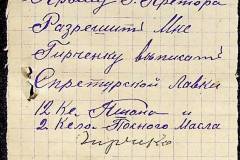 Прошу Г. Претора
Разрешить Мне
Гирченку выписать
С претурской Лавки
12 Ке. Пшона и
2 Кела Посного Масла
Гирчика